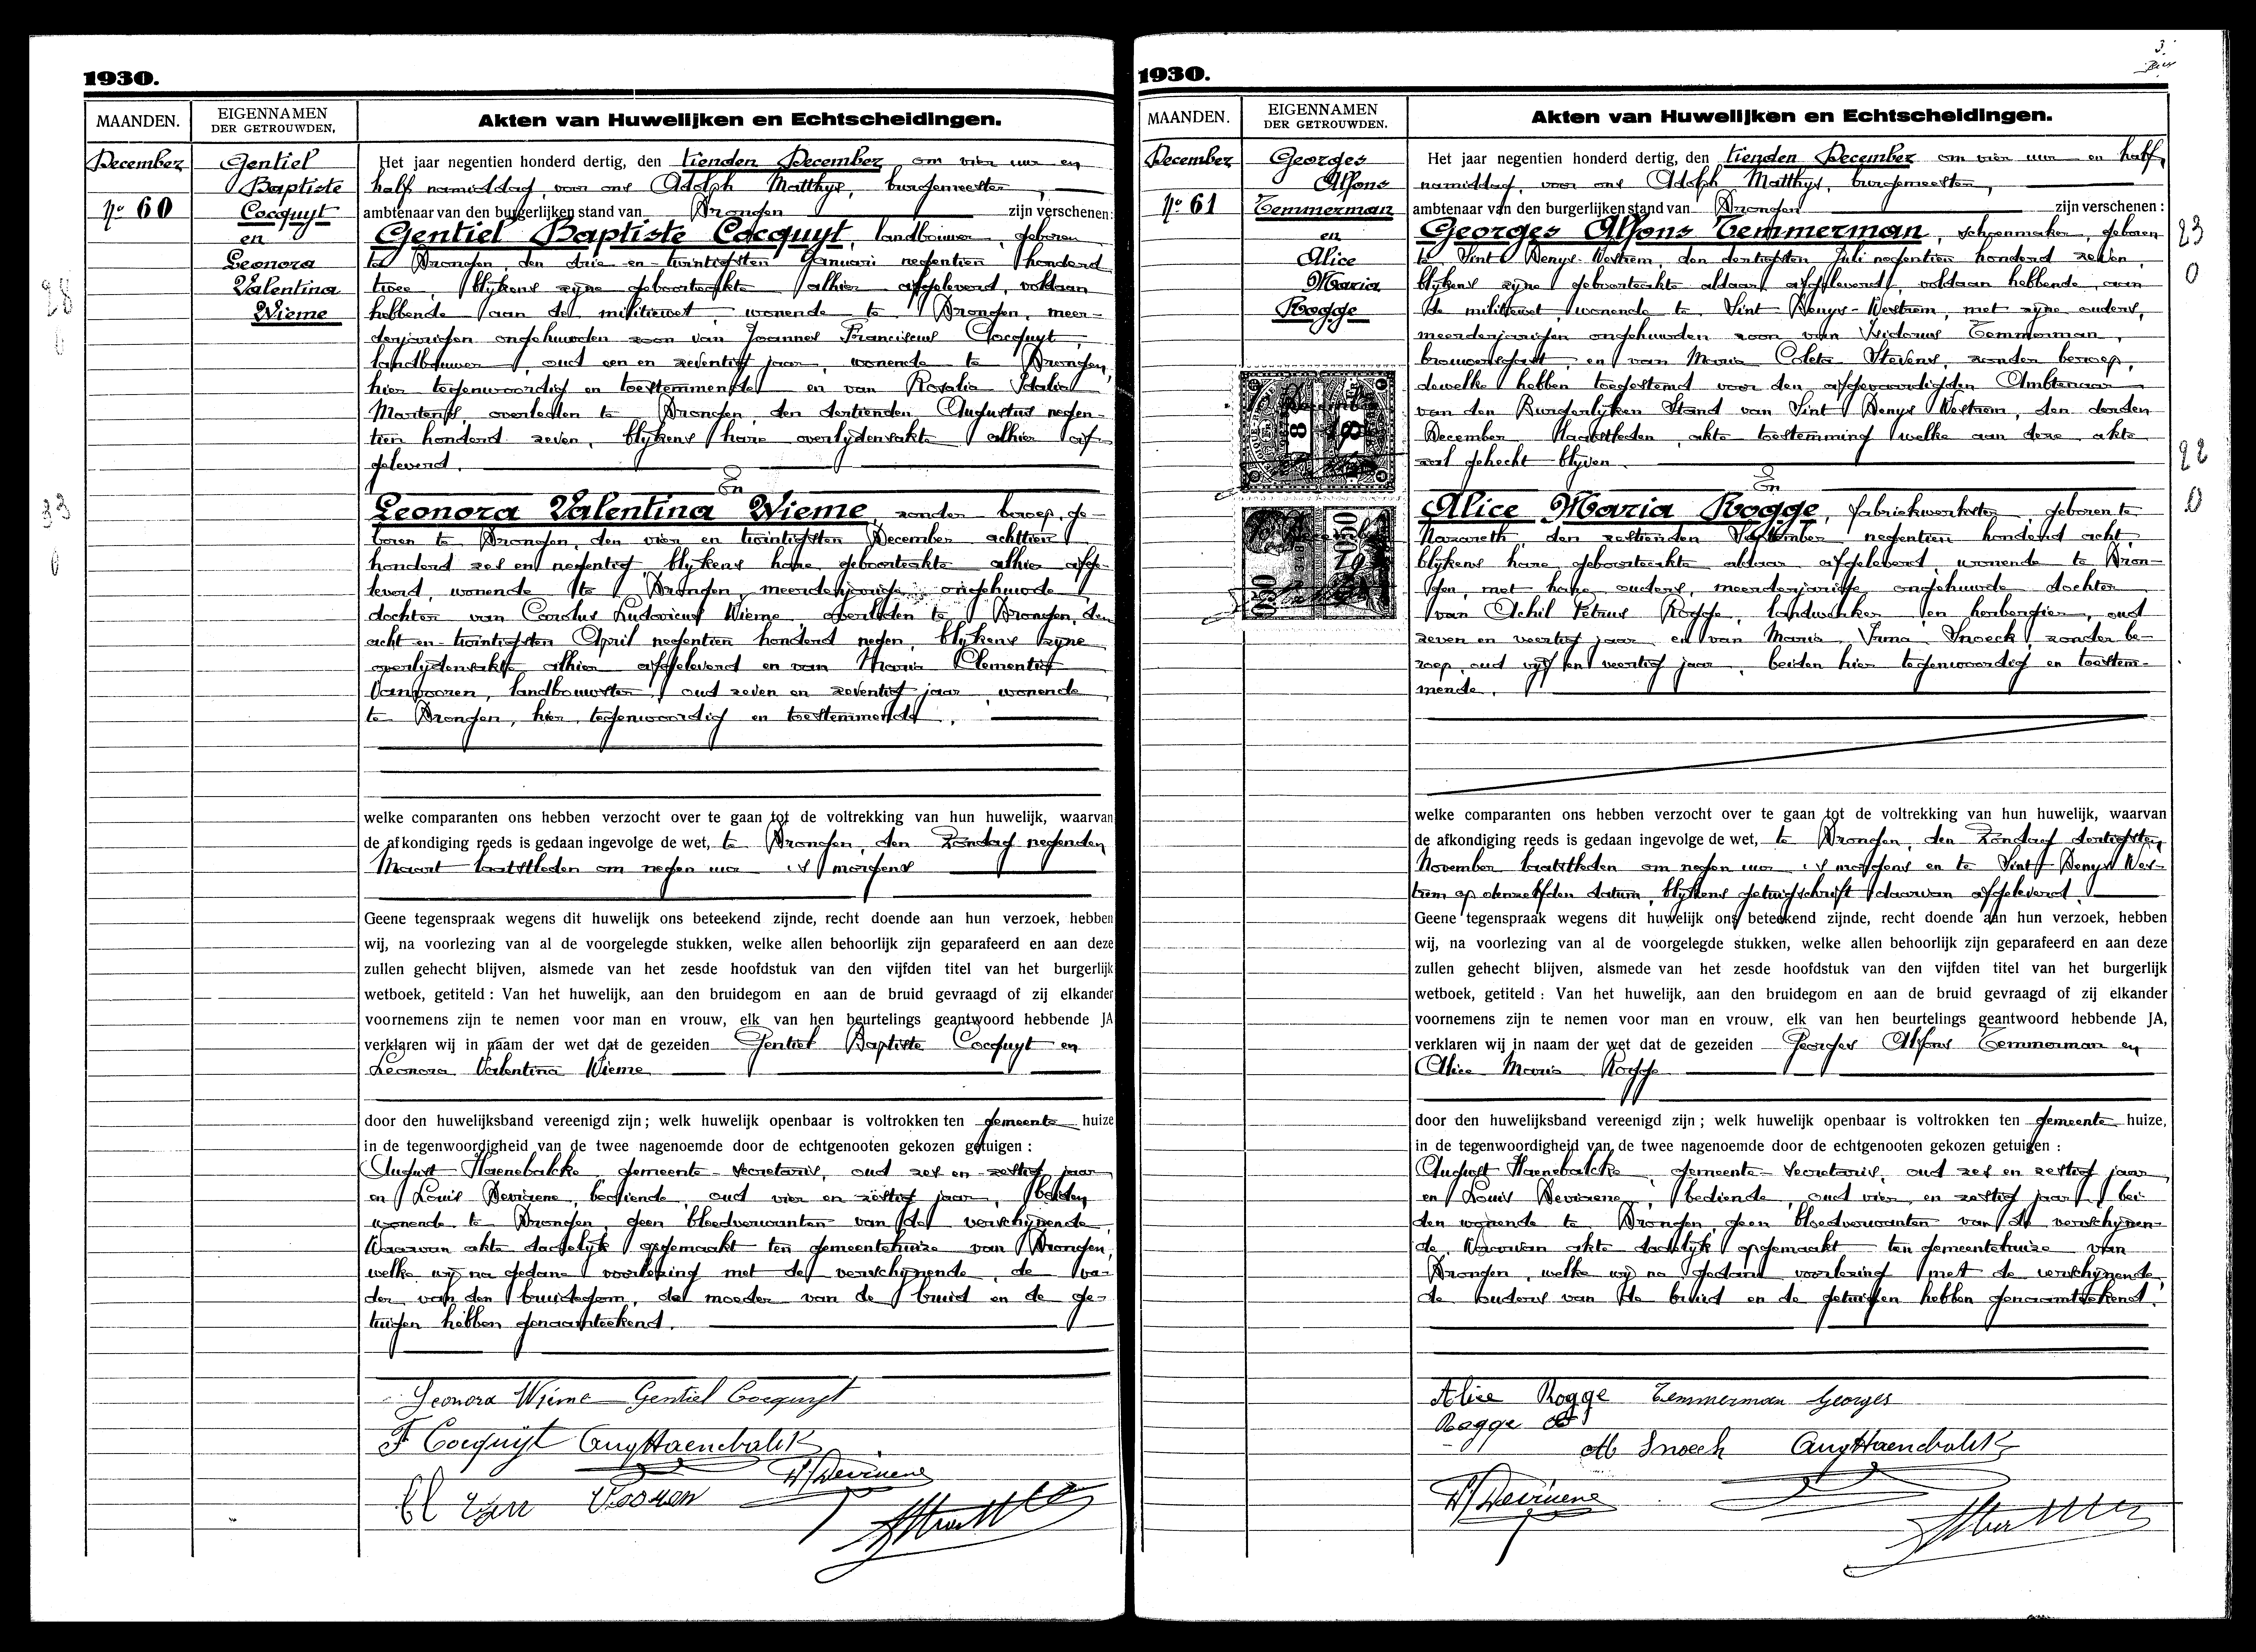 1930.
MAANDEN.
EIGENNAMEN
DER GETROUWDEN.
Akten van Huwelijken en Echtscheidingen.
December
No 60
Gentiel
Baptiste
Cocquyt
en
Leonora
Valentina
Wieme
28
0
33
0
Het jaar negentien honderd dertig, den tienden December om vier uur en
half namiddag, voor ons Adolph Matthys, burgemeester,
ambtenaar van den burgerlijken stand van Drongen zijn verschenen:
Gentiel Baptiste Cocquyt, landbouwer, geboren
te Drongen, den drie en twintigsten Januari negentien honderd
twee, blykens zyne geboorteakte alhier afgeleverd, voldaan
hebbende aan de militiewet, wonende te Drongen, meer-
derjarigen ongehuwden zoon van Joannes Franciscus Cocquyt,
landbouwer, oud een en zeventig jaar, wonende te Drongen,
hier tegenwoordig en toestemmende en van Rosalia Idalia
Martens, overleden te Drongen den dertienden Augustus negen-
tien honderd zeven, blykens hare overlydensakte alhier af-
geleverd.
En
Leonora Valentina Wieme, zonder beroep, ge-
boren te Drongen, den vier en twintigsten December achttien
honderd zes en negentig, blykens hare geboorteakte alhier afge-
leverd, wonende te Drongen, meerderjarige ongehuwde
dochter van Carolus Ludovicus Wieme, overleden te Drongen, den
acht en twintigsten April negentien honderd negen, blykens zyne
overlydensakte alhier afgeleverd en van Maria Clementia
Vanvooren, landbouwster, oud zeven en zeventig jaar, wonende
te Drongen, hier tegenwoordig en toestemmende.
welke comparanten ons hebben verzocht over te gaan tot de voltrekking van hun huwelijk, waarvan
de afkondiging reeds is gedaan ingevolge de wet, te Drongen, den Zondag negenden
Maart laatstleden om negen uur 's morgens
Geene tegenspraak wegens dit huwelijk ons beteekend zijnde, recht doende aan hun verzoek, hebben
wij, na voorlezing van al de voorgelegde stukken, welke allen behoorlijk zijn geparafeerd en aan deze
zullen gehecht blijven, alsmede van het zesde hoofdstuk van den vijfden titel van het burgerlijk
wetboek, getiteld : Van het huwelijk, aan den bruidegom en aan de bruid gevraagd of zij elkander
voornemens zijn te nemen voor man en vrouw, elk van hen beurtelings geantwoord hebbende JA
verklaren wij in naam der wet dat de gezeiden Gentiel Baptiste Cocquyt en
Leonora Valentina Wieme
door den huwelijksband vereenigd zijn ; welk huwelijk openbaar is voltrokken ten gemeente huize
in de tegenwoordigheid van de twee nagenoemde door de echtgenooten gekozen getuigen :
August Haenebalcke, gemeente-secretaris, oud zes en zestig jaar
en Louis Devisene, bediende, oud vier en zestig jaar, beiden
wonende te Drongen, geen bloedverwanten van de verschynende
Waarvan akte dadelyk opgemaakt ten gemeentehuize van Drongen,
welke wy na gedane voorlezing met de verschynende, de va-
der van den bruidegom, de moeder van de bruid en de ge-
tuigen hebben genaamteekend.
Leonora Wieme Gentiel Cocquyt
F Cocquyt Aug Haenebalck
Cl van Vooren
1930.
MAANDEN.
EIGENNAMEN
DER GETROUWDEN.
Akten van Huwelijken en Echtscheidingen.
December
No 61
Georges
Alfons
Temmerman
en
Alice
Maria
Rogge
23
0
22
0
Het jaar negentien honderd dertig, den tienden December om vier uur en half
namiddag, voor ons Adolph Matthys, burgemeester,
ambtenaar van den burgerlijken stand van Drongen zijn verschenen :
Georges Alfons Temmerman, schoenmaker, geboren
te Sint Denys-Westrem, den dertigsten Juli negentien honderd zeven,
blykens zyne geboorteakte aldaar afgeleverd, voldaan hebbende aan
de militiewet, wonende te Sint Denys-Westrem, met zyne ouders,
meerderjarigen ongehuwden zoon van Isidorus Temmerman,
brouwersgast, en van Maria Coleta Stevens, zonder beroep,
dewelke hebben toegestemd voor den afgevaardigden Ambtenaar
van den Burgerlyken Stand van Sint Denys Westrem, den derden
December laatstleden, akte toestemming welke aan deze akte
zal gehecht blyven.
En
Alice Maria Rogge, fabriekwerkster, geboren te
Nazareth, den zestienden September negentien honderd acht,
blykens hare geboorteakte aldaar afgeleverd, wonende te Dron-
gen, met hare ouders, meerderjarige ongehuwde dochter
van Achil Petrus Rogge, landwerker en herbergier, oud
zeven en veertig jaar en van Maria Irma Snoeck, zonder be-
roep, oud vyf en veertig jaar, beiden hier tegenwoordig en toestem-
mende.
welke comparanten ons hebben verzocht over te gaan tot de voltrekking van hun huwelijk, waarvan
de afkondiging reeds is gedaan ingevolge de wet, te Drongen, den Zondag dertigsten
November laatstleden om negen uur 's morgens en te Sint Denys Wes-
trem op denzelfden datum, blykens getuigschrift daarvan afgeleverd.
Geene tegenspraak wegens dit huwelijk ons beteekend zijnde, recht doende aan hun verzoek, hebben
wij, na voorlezing van al de voorgelegde stukken, welke allen behoorlijk zijn geparafeerd en aan deze
zullen gehecht blijven, alsmede van het zesde hoofdstuk van den vijfden titel van het burgerlijk
wetboek, getiteld : Van het huwelijk, aan den bruidegom en aan de bruid gevraagd of zij elkander
voornemens zijn te nemen voor man en vrouw, elk van hen beurtelings geantwoord hebbende JA,
verklaren wij in naam der wet dat de gezeiden Georges Alfons Temmerman en
Alice Maria Rogge
door den huwelijksband vereenigd zijn ; welk huwelijk openbaar is voltrokken ten gemeente huize,
in de tegenwoordigheid van de twee nagenoemde door de echtgenooten gekozen getuigen :
August Haenebalcke, gemeente-secretaris, oud zes en zestig jaar
en Louis Devisene, bediende, oud vier en zestig jaar, bei-
den wonende te Drongen, geen bloedverwanten van de verschynen-
de. Waarvan akte dadelyk opgemaakt ten gemeentehuize van
Drongen, welke wy na gedane voorlezing met de verschynende,
de ouders van de bruid en de getuigen hebben genaamteekend.
Alice Rogge Temmerman Georges
Rogge
M Snoeck Aug Haenebalck